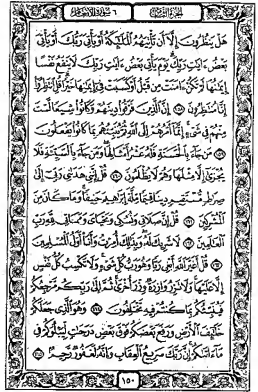 الجزء الثامن ٦ سورة الأنعام
هَلْ يَنظُرُونَ إِلَّا أَن تَأْتِيَهُمُ الْمَلَٰئِكَةُ أَوْ يَأْتِيَ رَبُّكَ أَوْ يَأْتِيَ
بَعْضُ ءَايَٰتِ رَبِّكَ يَوْمَ يَأْتِي بَعْضُ ءَايَٰتِ رَبِّكَ لَا يَنفَعُ نَفْسًا
إِيمَٰنُهَا لَمْ تَكُنْ ءَامَنَتْ مِن قَبْلُ أَوْ كَسَبَتْ فِي إِيمَٰنِهَا خَيْرًا قُلِ انتَظِرُوا
إِنَّا مُنتَظِرُونَ ١٥٨ إِنَّ الَّذِينَ فَرَّقُوا دِينَهُمْ وَكَانُوا شِيَعًا لَّسْتَ
مِنْهُمْ فِي شَيْءٍ إِنَّمَا أَمْرُهُمْ إِلَى اللَّهِ ثُمَّ يُنَبِّئُهُم بِمَا كَانُوا يَفْعَلُونَ
١٥٩ مَن جَاءَ بِالْحَسَنَةِ فَلَهُ عَشْرُ أَمْثَالِهَا وَمَن جَاءَ بِالسَّيِّئَةِ فَلَا
يُجْزَىٰ إِلَّا مِثْلَهَا وَهُمْ لَا يُظْلَمُونَ ١٦٠ قُلْ إِنَّنِي هَدَىٰنِي رَبِّي إِلَىٰ
صِرَٰطٍ مُّسْتَقِيمٍ دِينًا قِيَمًا مِّلَّةَ إِبْرَٰهِيمَ حَنِيفًا وَمَا كَانَ مِنَ
الْمُشْرِكِينَ ١٦١ قُلْ إِنَّ صَلَاتِي وَنُسُكِي وَمَحْيَايَ وَمَمَاتِي لِلَّهِ رَبِّ
الْعَٰلَمِينَ ١٦٢ لَا شَرِيكَ لَهُ وَبِذَٰلِكَ أُمِرْتُ وَأَنَا أَوَّلُ الْمُسْلِمِينَ
١٦٣ قُلْ أَغَيْرَ اللَّهِ أَبْغِي رَبًّا وَهُوَ رَبُّ كُلِّ شَيْءٍ وَلَا تَكْسِبُ كُلُّ نَفْسٍ
إِلَّا عَلَيْهَا وَلَا تَزِرُ وَازِرَةٌ وِزْرَ أُخْرَىٰ ثُمَّ إِلَىٰ رَبِّكُم مَّرْجِعُكُمْ
فَيُنَبِّئُكُم بِمَا كُنتُمْ فِيهِ تَخْتَلِفُونَ ١٦٤ وَهُوَ الَّذِي جَعَلَكُمْ
خَلَٰئِفَ الْأَرْضِ وَرَفَعَ بَعْضَكُمْ فَوْقَ بَعْضٍ دَرَجَٰتٍ لِّيَبْلُوَكُمْ فِي
مَا ءَاتَىٰكُمْ إِنَّ رَبَّكَ سَرِيعُ الْعِقَابِ وَإِنَّهُ لَغَفُورٌ رَّحِيمٌ ١٦٥
١٥٠